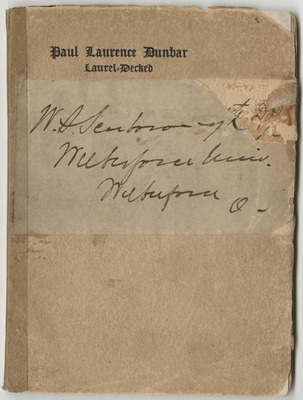 Paul Laurence Dunbar
Laurel-Decked
W. S. Scarborough
Wilberforce Univ.
Wilberforce
O-